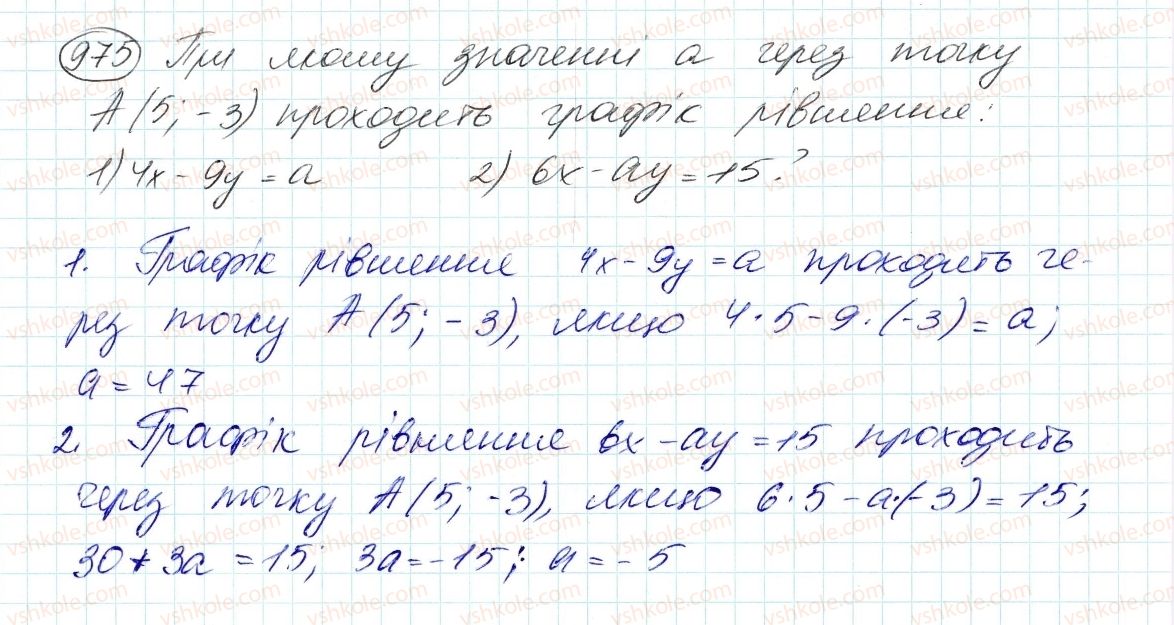 975 При якому значенні a через точку
A(5; -3) проходить графік рівняння:
1) 4x - 9y = a 2) 6x - ay = 15?
1. Графік рівняння 4x - 9y = a проходить че-
рез точку A(5; -3), якщо 4·5 - 9·(-3) = a;
a = 47
2. Графік рівняння 6x - ay = 15 проходить
через точку A(5; -3), якщо 6·5 - a·(-3) = 15;
30 + 3a = 15; 3a = -15; a = -5